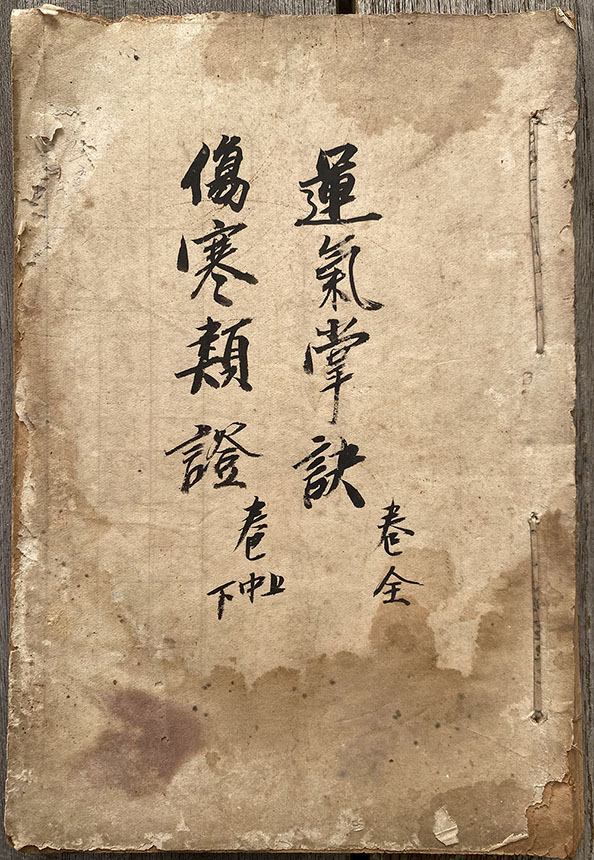 運氣掌訣
卷全
傷寒類證
卷上中下